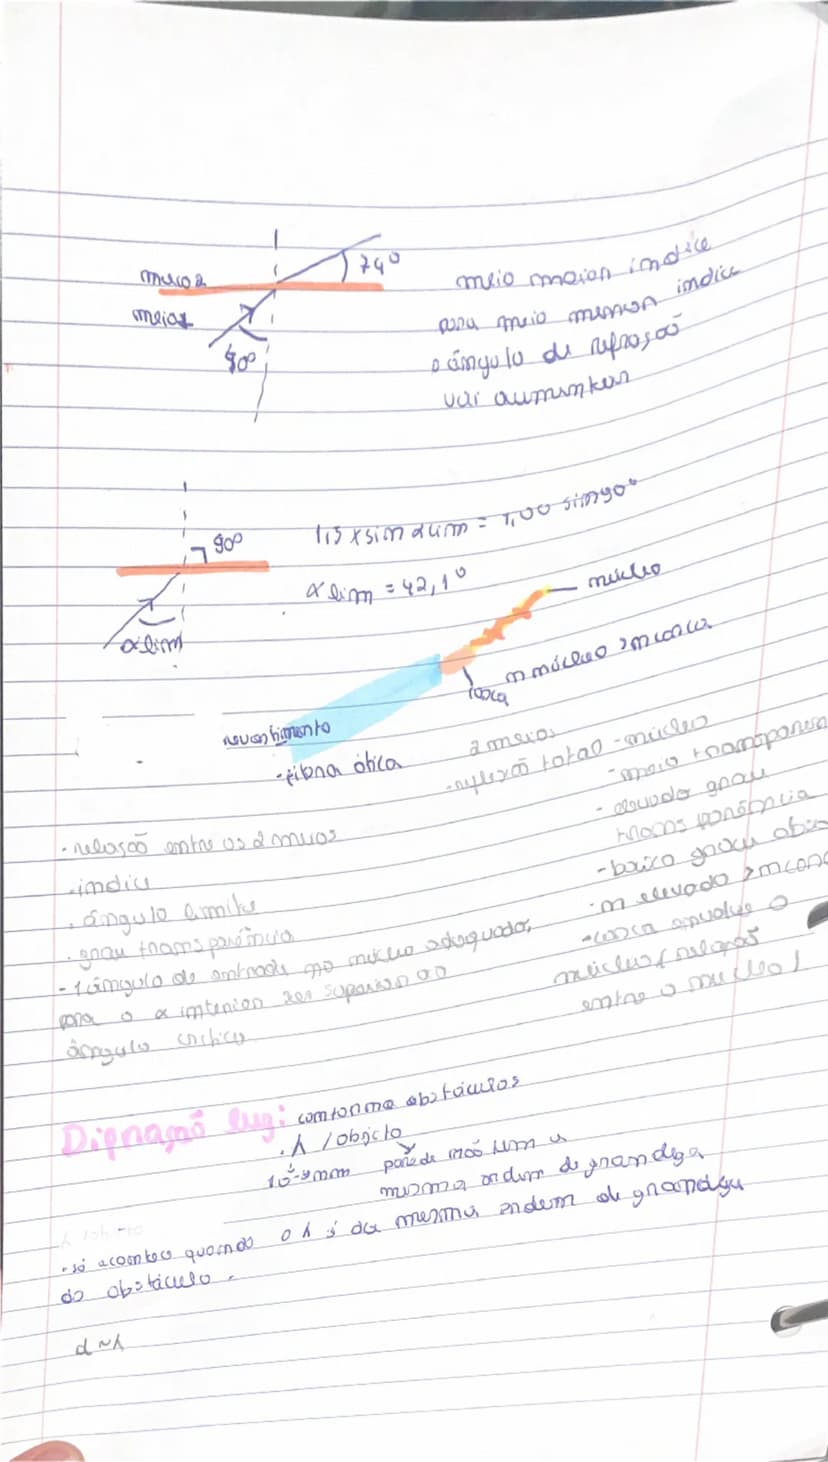 meio 2
74º
meio 1
40º
meio maior indice
para meio menor indice
o ângulo de refração
vai aumentar
90º
αlim
1,5 x sin αlim = 1,00 sin 90º
α lim = 42,1º
núcleo
n núcleo > n casca
casca
revestimento
- fibra ótica
2 meios
- reflexão total - núcleo
- meio transparen
- elevado grau
transparência
- baixo grau abs
- n elevado > n
- casca envolve o
núcleo / relação
entre o núcleo /
. relação entre os 2 meios
. indice
. ângulo limite
. grau transparência
- 1 ângulo de entrada no núcleo adequado,
para o α interior ser superior ao
ângulo crítico
Difração luz: contorna obstáculos
. λ / objeto
10⁻⁹mm parede não tem a
mesma ordem de grandeza
. só acontece quando o λ é da mesma ordem de grandeza
do obstáculo.
d ~ λ